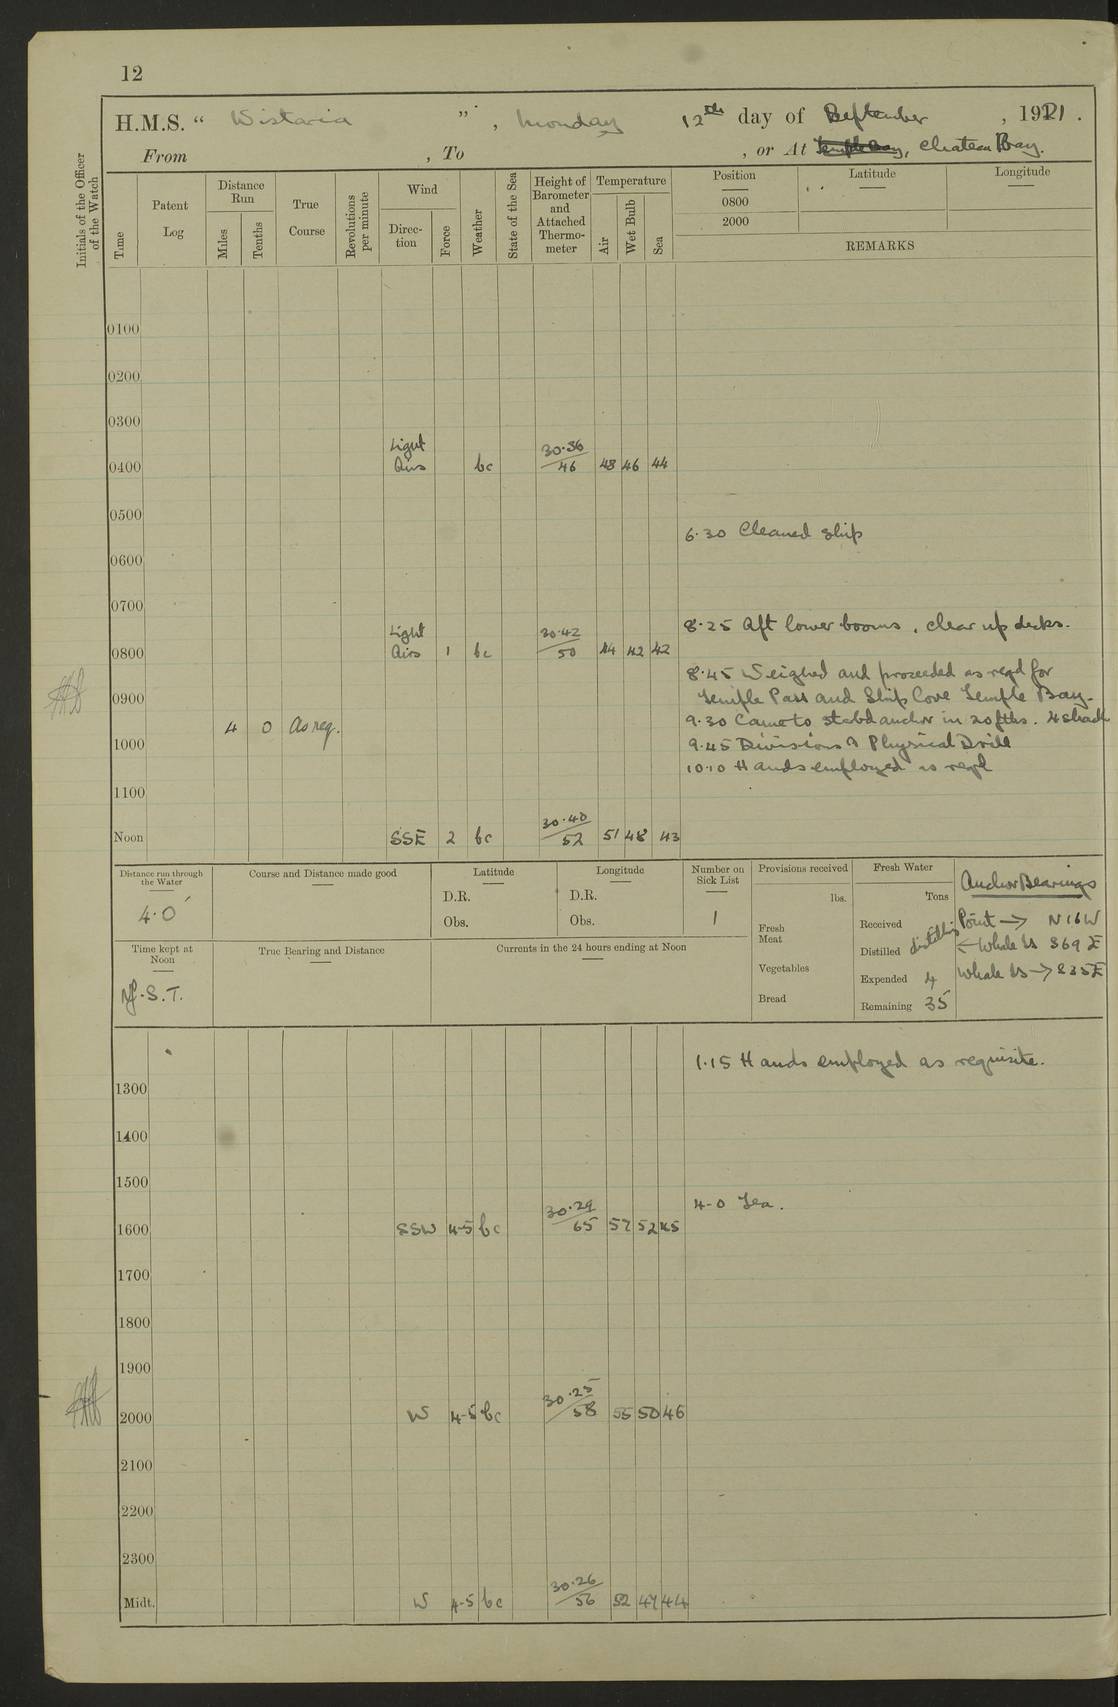 12
H.M.S. “ Wistaria ”, Monday 12th day of September, 1921.
From , To , or At Chateau Bay.
Initials of the Officer of the Watch
Time
Patent Log
Distance Run
Miles
Tenths
True Course
Revolutions per minute
Wind
Direction
Force
Weather
State of the Sea
Height of Barometer and Attached Thermometer
Temperature
Air
Wet Bulb
Sea
Position Latitude Longitude
0800
2000
REMARKS
0100
0200
0300
0400 Light Airs bc 30.36/46 48 46 44
0500
6.30 Cleaned Ship
0600
0700
8.25 Aft lower booms, clear up decks.
0800 Light Airs 1 bc 30.42/50 44 42 42
8.45 Weighed and proceeded as reqd for
0900 Temple Pass and Ship Cove Temple Bay.
4 0 As req. 9.30 Came to stabd anchor in 20 fths. 4 shack
1000 9.45 Divisions & Physical Drill
10.10 Hands employed as reqd
1100
Noon SSE 2 bc 30.40/52 51 48 43
Distance run through the Water
4.0'
Course and Distance made good
Latitude
D.R.
Obs.
Longitude
D.R.
Obs.
Number on Sick List
1
Provisions received
lbs.
Fresh Meat
Vegetables
Bread
Fresh Water
Tons
Received
Distilled distilling
Expended 4
Remaining 35
Anchor Bearings
Point → N16W
← Whale Is S69E
Whale Is → S35E
Time kept at Noon
Nf.S.T.
True Bearing and Distance
Currents in the 24 hours ending at Noon
1.15 Hands employed as requisite.
1300
1400
1500
4-0 Tea.
1600 SSW 4-5 bc 30.29/65 57 52 45
1700
1800
1900
2000 W 4-5 bc 30.25/58 55 50 46
2100
2200
2300
Midt. W 4-5 bc 30.26/56 52 47 44